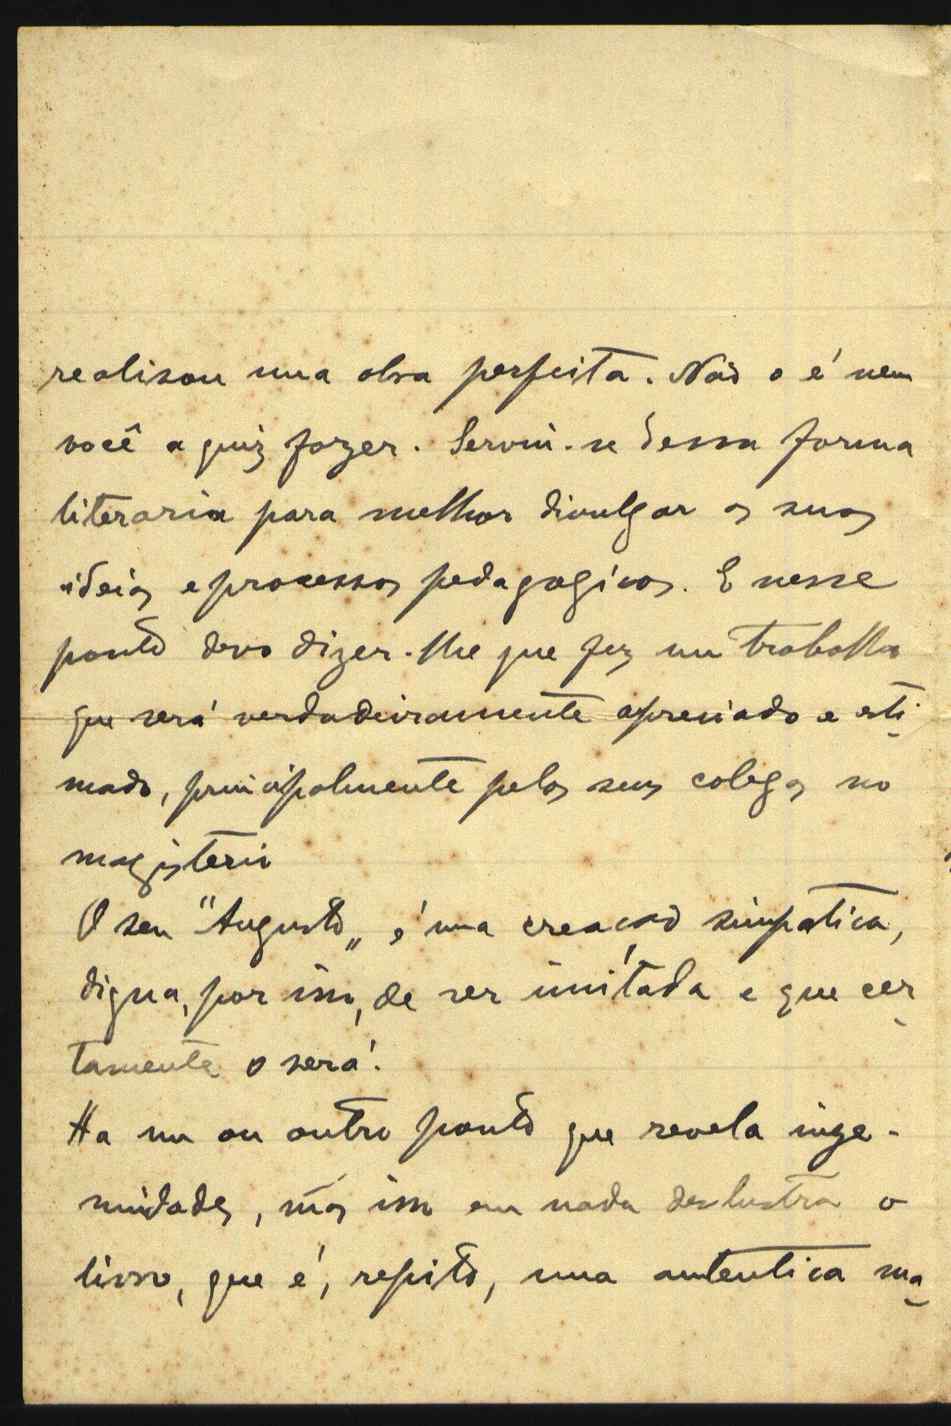 realisou uma obra perfeita. Não o é nem
você a quiz fazer. Serviu-se dessa forma
literaria para melhor divulgar as suas
ideias e processos pedagogicos. E nesse
ponto devo dizer-lhe que fez um trabalho
que será verdadeiramente apreciado e esti-
mado, principalmente pelos seus colegas no
magisterio
O seu "Augusto„ é uma creacão simpatica,
digna, por isso, de ser imitada e que cer-
tamente o será.
Ha um ou outro ponto que revela inge-
nuidades, mas isso em nada deslustra o
livro, que é, repito, uma autentica ma-